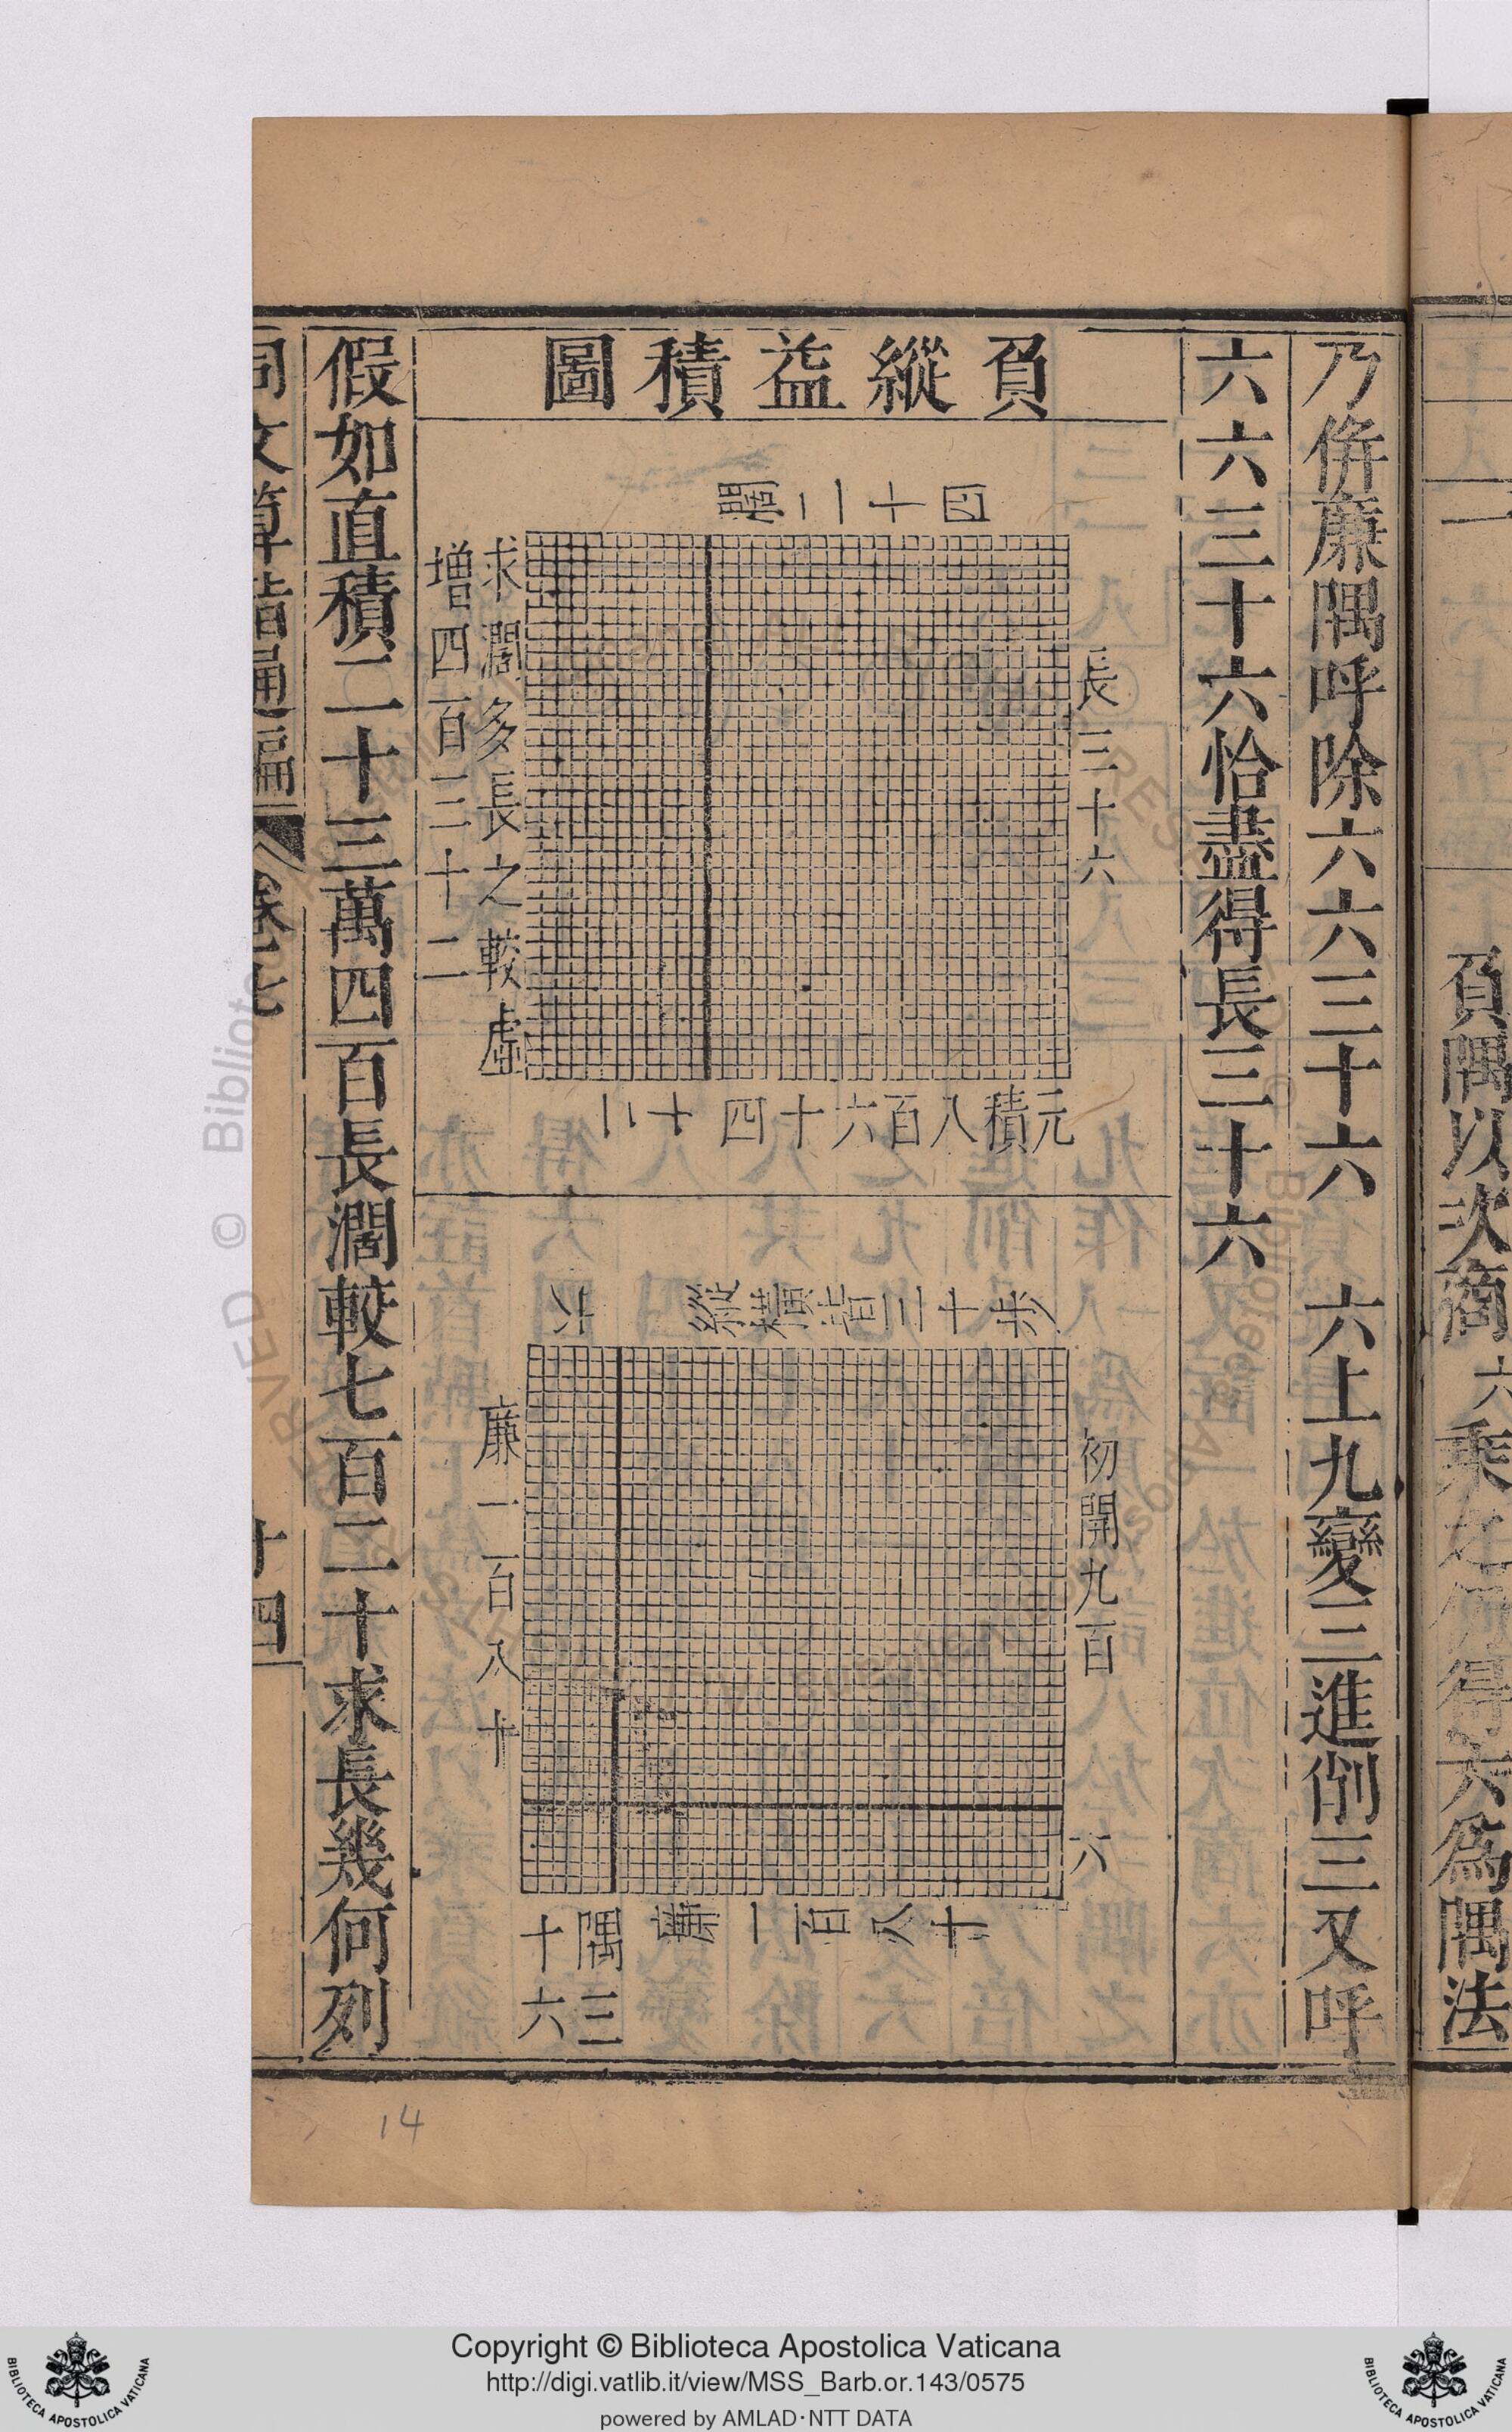 負隅以次商六乘之仍得六爲隅法
乃併廉隅呼除六六三十六　六上九變三進削三又呼
六六三十六恰盡得長三十六
負縱益積圖
四十二闊
長三十六
求濶多長之較虛
增四百三十二
元積八百六十四
十二
縱橫皆三十步
六
初開九百
六
廉一百八十
廉一百八十
隅三
十六
假如直積二十三萬四百長濶較七百二十求長幾何列
同文算指通編
卷七
十四
14
© Biblioteca
RVED
Copyright © Biblioteca Apostolica Vaticana
http://digi.vatlib.it/view/MSS_Barb.or.143/0575
powered by AMLAD·NTT DATA
BIBLIOTECA APOSTOLICA VATICANA
BIBLIOTECA APOSTOLICA VATICANA